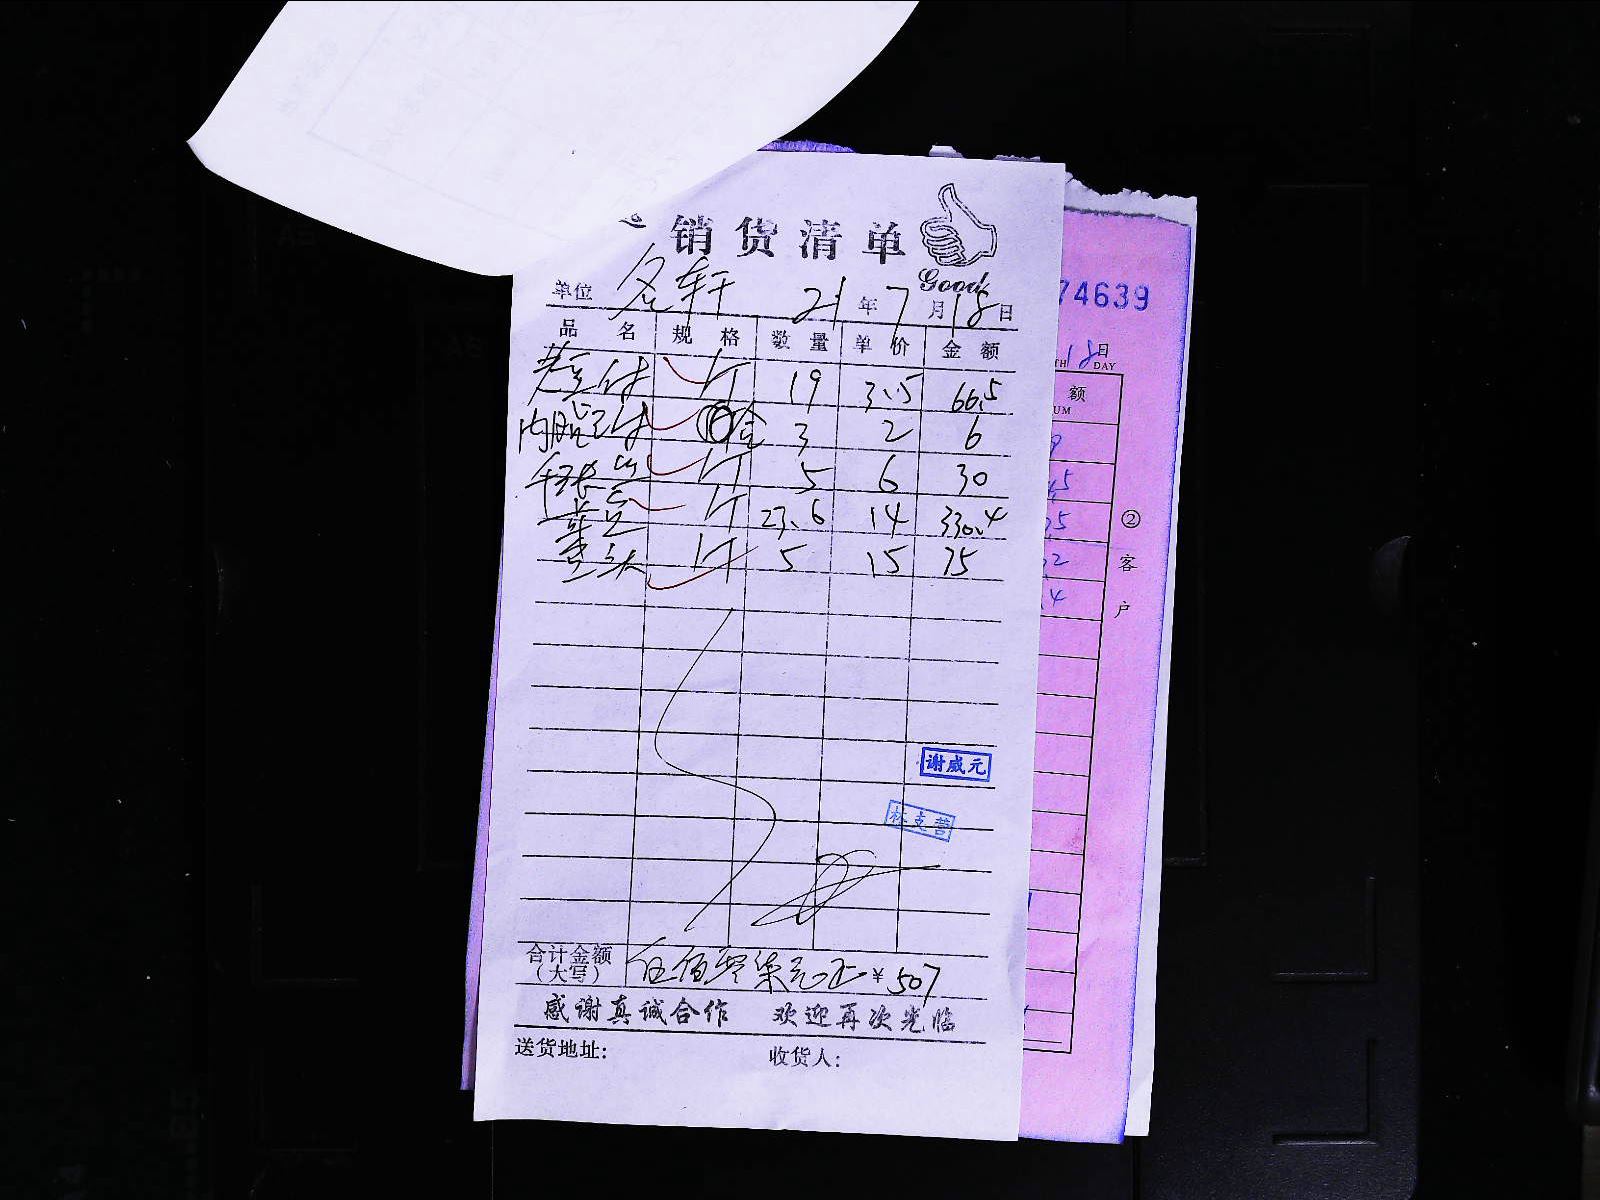 销货清单
Good
单位 名轩 21年7月18日
品名 规格 数量 单价 金额
老豆付 斤 19 3.5 66.5
内脂豆付 盒 3 2 6
千张 斤 5 6 30
斤 23.6 14 330.4
斤 5 15 75
谢威元
合计金额（大写） 伍佰零柒元正 ¥507
感谢真诚合作 欢迎再次光临
送货地址： 收货人：
74639
18日
DAY
额
UM
②客户